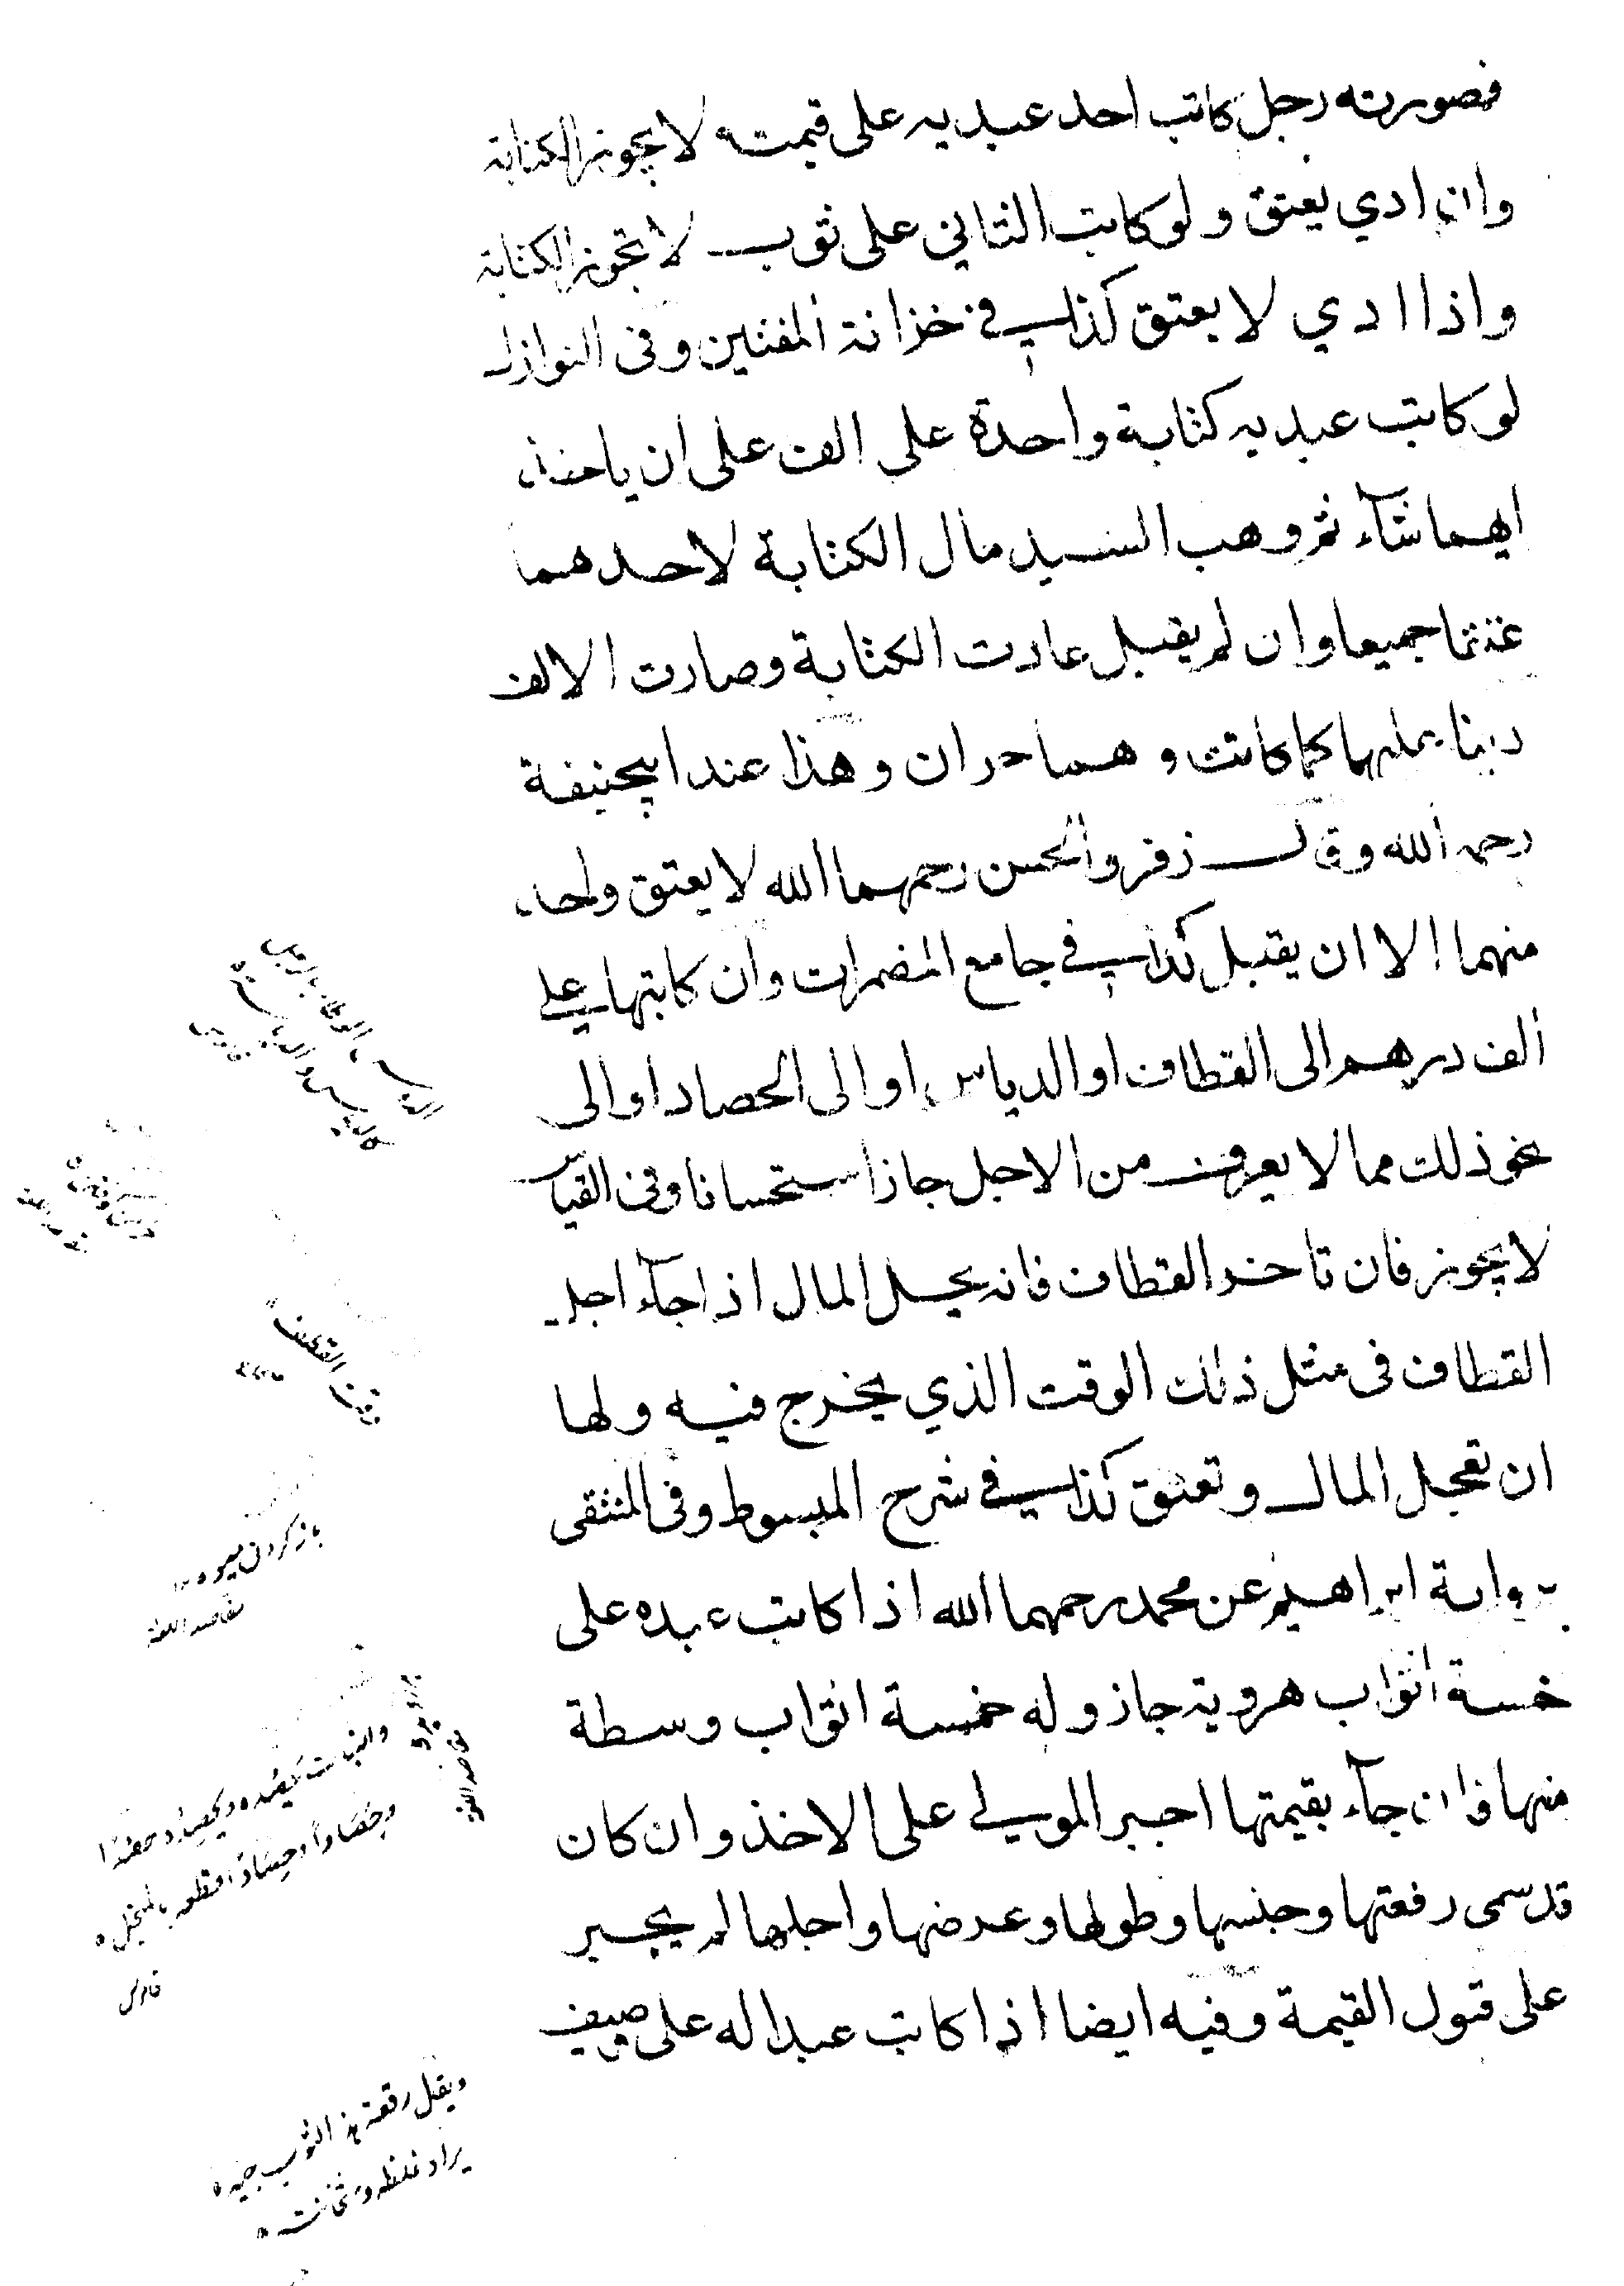 فصورته رجل كاتب احد عبديه على قيمته لا يجوز الكتابة
وان ادي يعتق ولو كاتب الثاني على ثوب لا تجوز الكتابة
واذا ادي لا يعتق كذا في خزانة المفتين وفى النوازل
لو كاتب عبديه كتابة واحدة على الف على ان ياخذ
ايهما شآء ثم وهب السيد مال الكتابة لاحدهما
عتقا جميعا وان لم يقبل عادت الكتابة وصارت الالف
دينا عليهما كما كانت وهما حران وهذا عند ابيحنيفة
رحمه الله وقال زفر والحسن رحمهما الله لا يعتق واحد
منهما الا ان يقبل كذا في جامع المضمرات وان كاتبها على
الف درهم الى القطاف او الدياس او الى الحصاد او الى
نحو ذلك مما لا يعرف من الاجل جاز استحسانا وفى القياس
لا يجوز فان تاخر القطاف فانه يحل المال اذا جآء اجل
القطاف فى مثل ذلك الوقت الذي يخرج فيه ولها
ان تعجل المال وتعتق كذا في شرح المبسوط وفى المنتقى
برواية ابراهيم عن محمد رحمهما الله اذا كاتب عبده على
خمسة اثواب هروية جاز وله خمسة اثواب وسطة
منها فان جآء بقيمتها اجبر المولى على الاخذ وان كان
قد سمى رفعتها وجنسها وطولها وعرضها واجلها لم يجبر
على قبول القيمة وفيه ايضا اذا كاتب عبدا له على وصيف
القطف
باز كردن ميوه
ويقال رقعة هذا الثوب جيده
يراد غلظه وثخانته